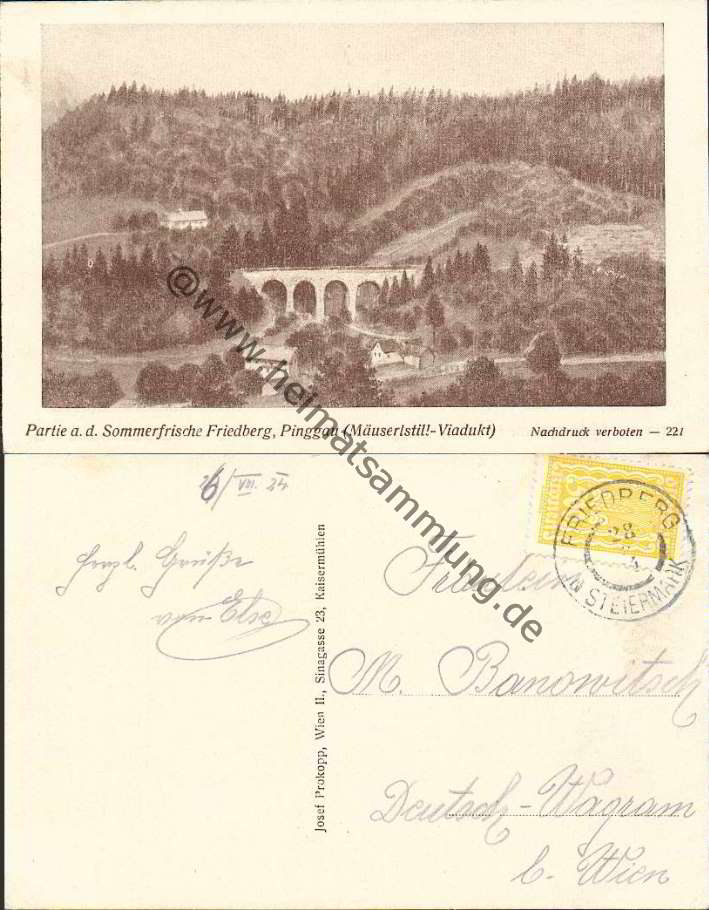 Partie a. d. Sommerfrische Friedberg, Pinggau (Mäuserlstill-Viadukt)
Nachdruck verboten — 221
@www.heimatsammlung.de
VIII. 24
Herzl. Grüße
von Else
Josef Prokopp, Wien II., Sinagasse 23, Kaisermühlen
FRIEDBERG
28
IN STEIERMARK
Fräulein
M. Banowitsch
Deutsch-Wagram
b. Wien